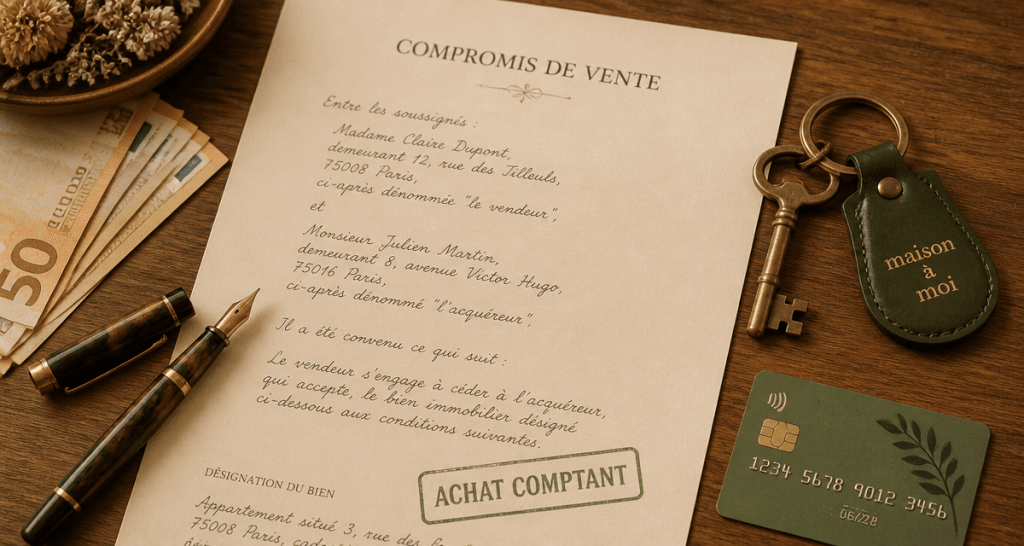 COMPROMIS DE VENTE
Entre les soussignés :
Madame Claire Dupont,
demeurant 12, rue des Tilleuls,
75008 Paris,
ci-après dénommée "le vendeur",
et
Monsieur Julien Martin,
demeurant 8, avenue Victor Hugo,
75016 Paris,
ci-après dénommé "l'acquéreur",
Il a été convenu ce qui suit :
Le vendeur s'engage à céder à l'acquéreur,
qui accepte, le bien immobilier désigné
ci-dessous aux conditions suivantes.
DÉSIGNATION DU BIEN
Appartement situé 3, rue des
75008 Paris,
ACHAT COMPTANT
50
maison
à
moi
1234 5678 9012 3456
06/28